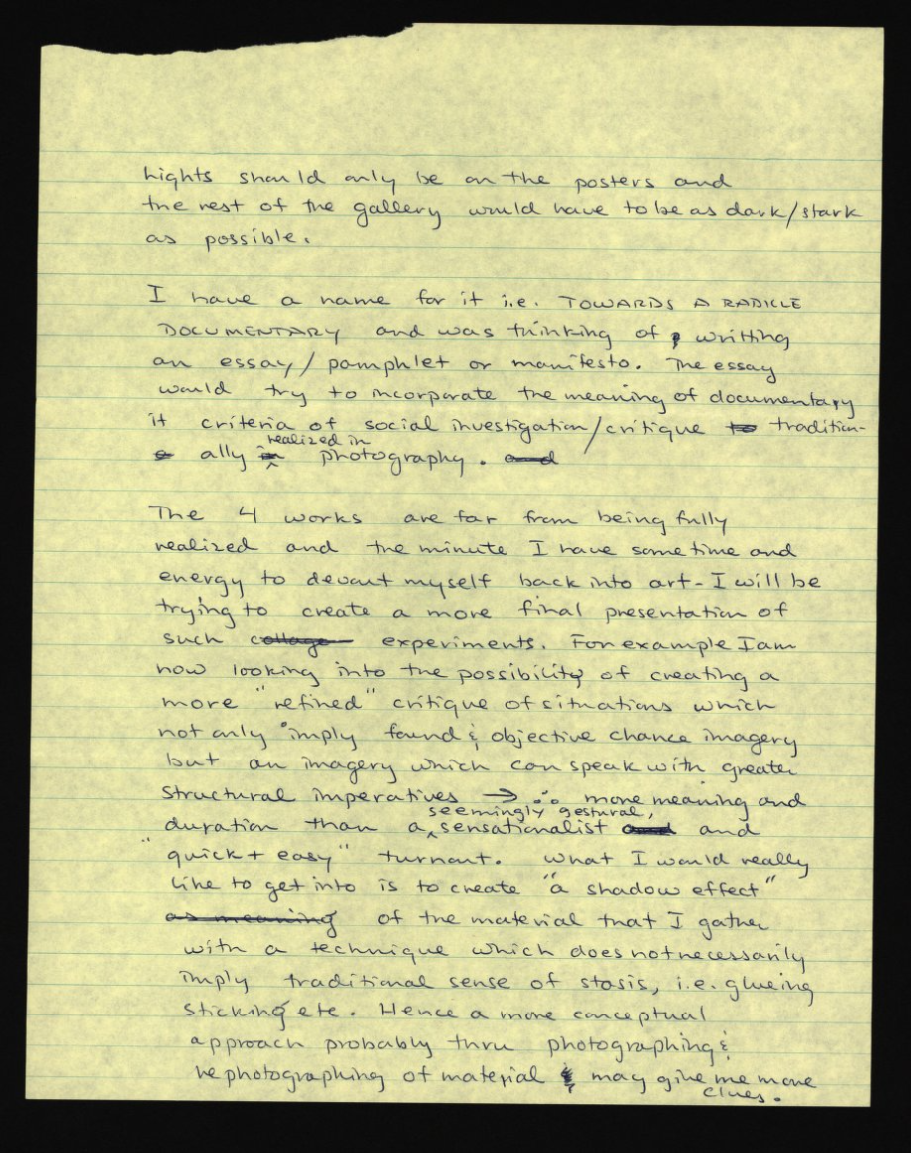 Lights should only be on the posters and
the rest of the gallery would have to be as dark/stark
as possible.
I have a name for it i.e. TOWARDS A RADICLE
DOCUMENTARY and was thinking of writting
an essay/pamphlet or manifesto. The essay
would try to incorporate the meaning of documentary
it criteria of social investigation/critique to tradition-
ally realized in photography. and
The 4 works are far from being fully
realized and the minute I have some time and
energy to devout myself back into art - I will be
trying to create a more final presentation of
such collage experiments. For example I am
now looking into the possibility of creating a
more "refined" critique of situations which
not only imply found & objective chance imagery
but an imagery which can speak with greater
structural imperatives → ∴ more meaning and
duration than a seemingly gestural, sensationalist and and
"quick + easy" turnout. What I would really
like to get into is to create "a shadow effect"
as meaning of the material that I gather
with a technique which does not necessarily
imply traditional sense of stasis, i.e. glueing
sticking etc. Hence a more conceptual
approach probably thru photographing &
rephotographing of material & may give me more
clues.